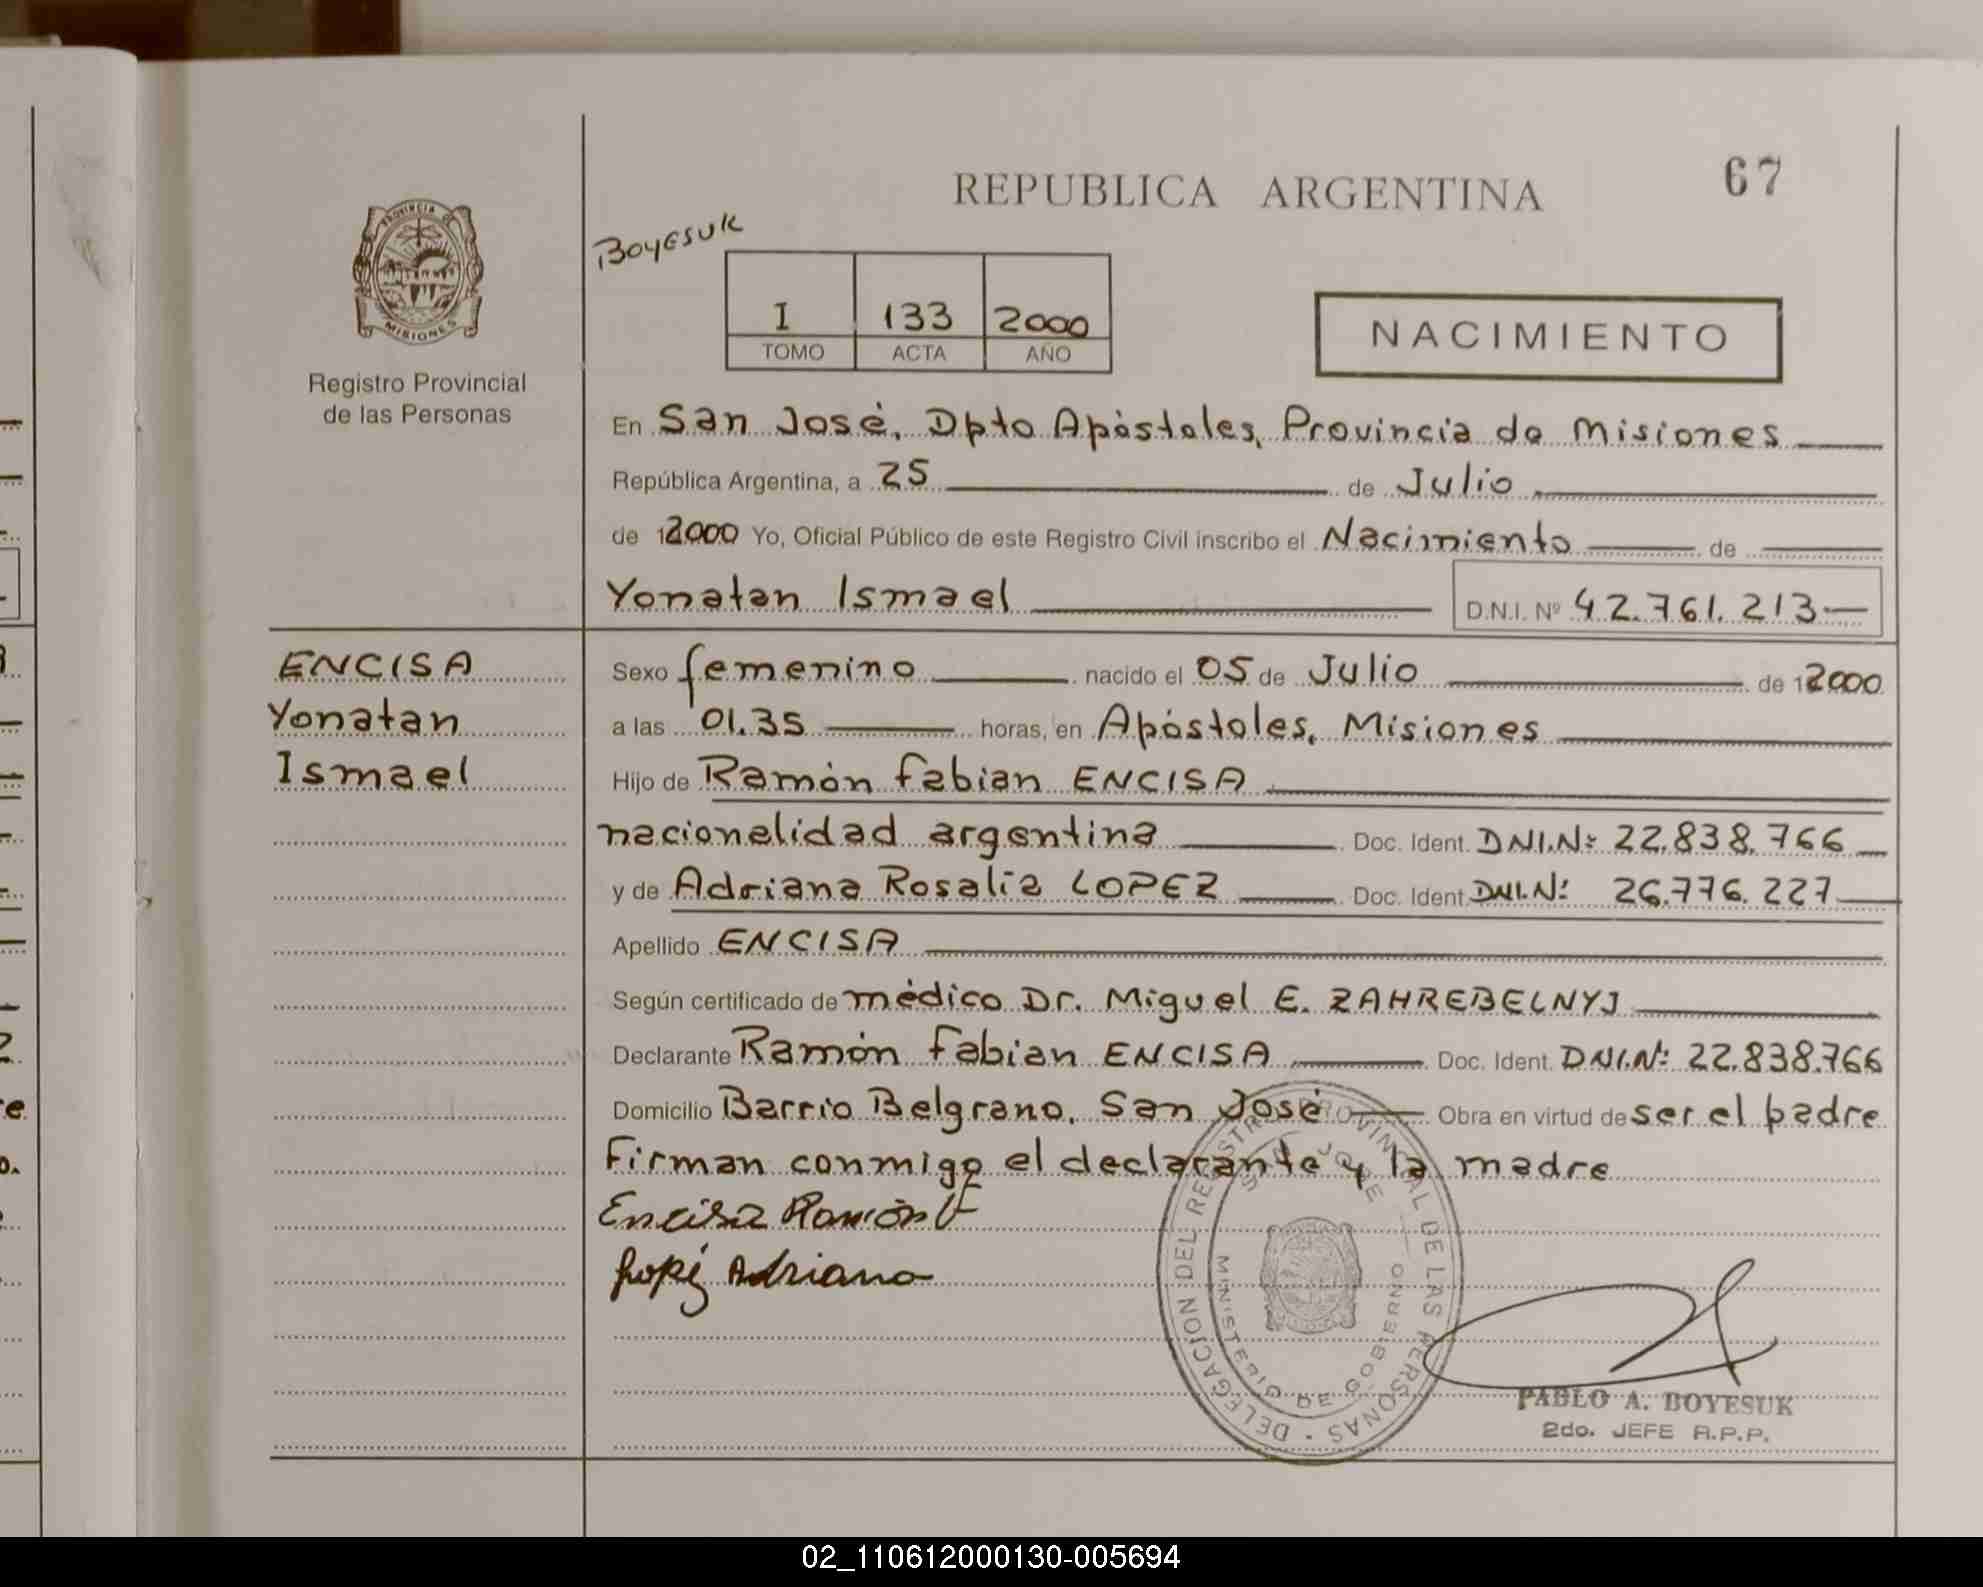 REPUBLICA ARGENTINA
67
PROVINCIA DE
MISIONES
Registro Provincial
de las Personas
Boyesuk
I 133 2000
TOMO ACTA AÑO
NACIMIENTO
En San José, Dpto Apóstoles, Provincia de Misiones
República Argentina, a 25 de Julio
de 12000 Yo, Oficial Público de este Registro Civil inscribo el Nacimiento de
Yonatan Ismael D.N.I. Nº 42.761.213
ENCISA
Yonatan
Ismael
Sexo femenino nacido el 05 de Julio de 12000
a las 01.35 horas, en Apóstoles, Misiones
Hijo de Ramón Fabian ENCISA
nacionalidad argentina Doc. Ident. DNI.Nº 22.838.766
y de Adriana Rosalia LOPEZ Doc. Ident. DNI.Nº 26.776.227
Apellido ENCISA
Según certificado de médico Dr. Miguel E. ZAHREBELNYJ
Declarante Ramón Fabian ENCISA Doc. Ident. DNI.Nº 22.838.766
Domicilio Barrio Belgrano, San José Obra en virtud de ser el padre
Firman conmigo el declarante y la madre
Encisa Ramón F
Lopez Adriana
DELEGACION DEL REGISTRO PROVINCIAL DE LAS PERSONAS
SAN JOSE
MINISTERIO DE GOBIERNO
PABLO A. BOYESUK
2do. JEFE R.P.P.
02_110612000130-005694